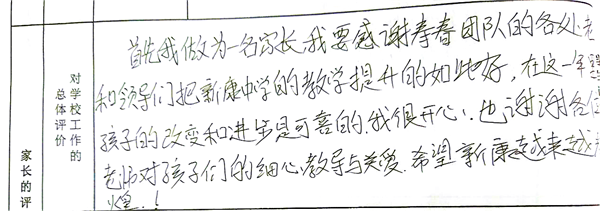 对学校工作的
总体评价
家长的评
首先我做为一名家长,我要感谢青春团队的各处老
和领导们把新康中学的教学提升的如此好,在这一年
孩子的改变和进步是可喜的,我很开心!也谢谢各位
老师对孩子们的细心教导与关爱.希望新康越来越
煌!